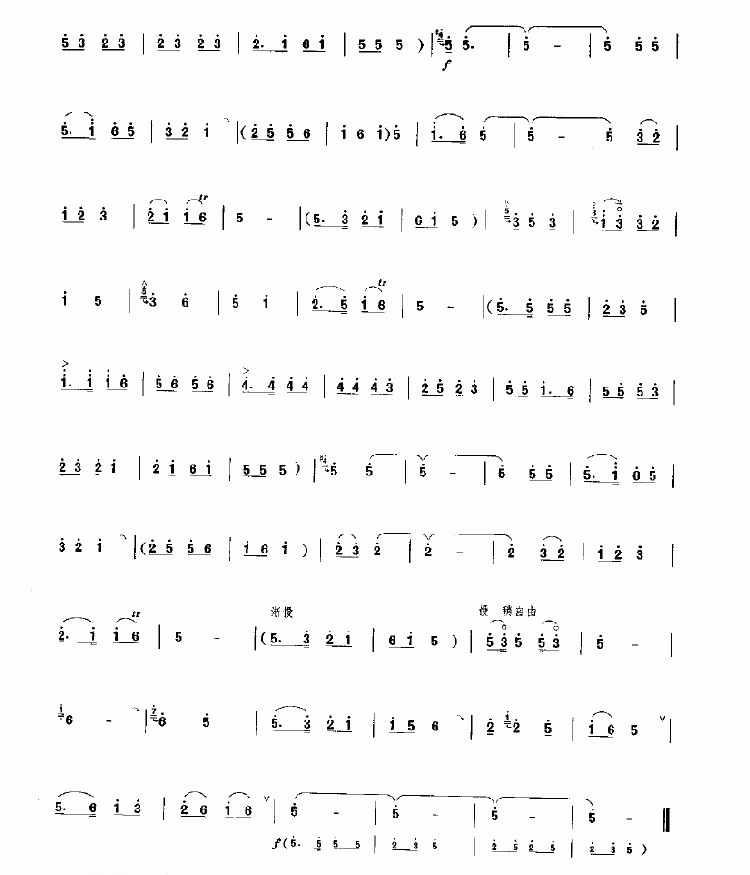 5 3 2 3 | 2 3 2 3 | 2. 1 6 1 | 5 5 5 ) | 5 5. | 5 - | 5 5 5 |
f
5. 1 6 5 | 3 2 1 | ( 2 5 5 6 | 1 6 1 ) 5 | 1. 6 5 | 5 - 5 3 2 |
tr
1 2 3 | 2 1 1 6 | 5 - | ( 5. 3 2 1 | 6 1 5 ) | 3 5 3 | 1 3 3 2 |
tr
1 5 | 3 6 | 5 1 | 2. 5 1 6 | 5 - | ( 5. 5 5 5 | 2 3 5 |
1. 1 1 6 | 5 6 5 6 | 4. 4 4 4 | 4 4 4 3 | 2 5 2 3 | 5 5 1. 6 | 5 5 5 3 |
2 3 2 1 | 2 1 6 1 | 5 5 5 ) | 5 5 | 5 - | 5 5 5 | 5. 1 6 5 |
3 2 1 | ( 2 5 5 6 | 1 6 1 ) | 2 3 2 | 2 - | 2 3 2 | 1 2 3 |
tr 渐慢 慢 稍自由
2. 1 1 6 | 5 - | ( 5. 3 2 1 | 6 1 5 ) | 5 3 5 5 3 | 5 - |
6 - | 6 5 | 5. 3 2 1 | 1 5 6 | 2 2 5 | 1 6 5 |
5. 6 1 3 | 2 6 1 6 | 5 - | 5 - | 5 - | 5 - ‖
f ( 5. 5 5 5 | 2 3 5 | 2 5 2 5 | 2 3 5 )